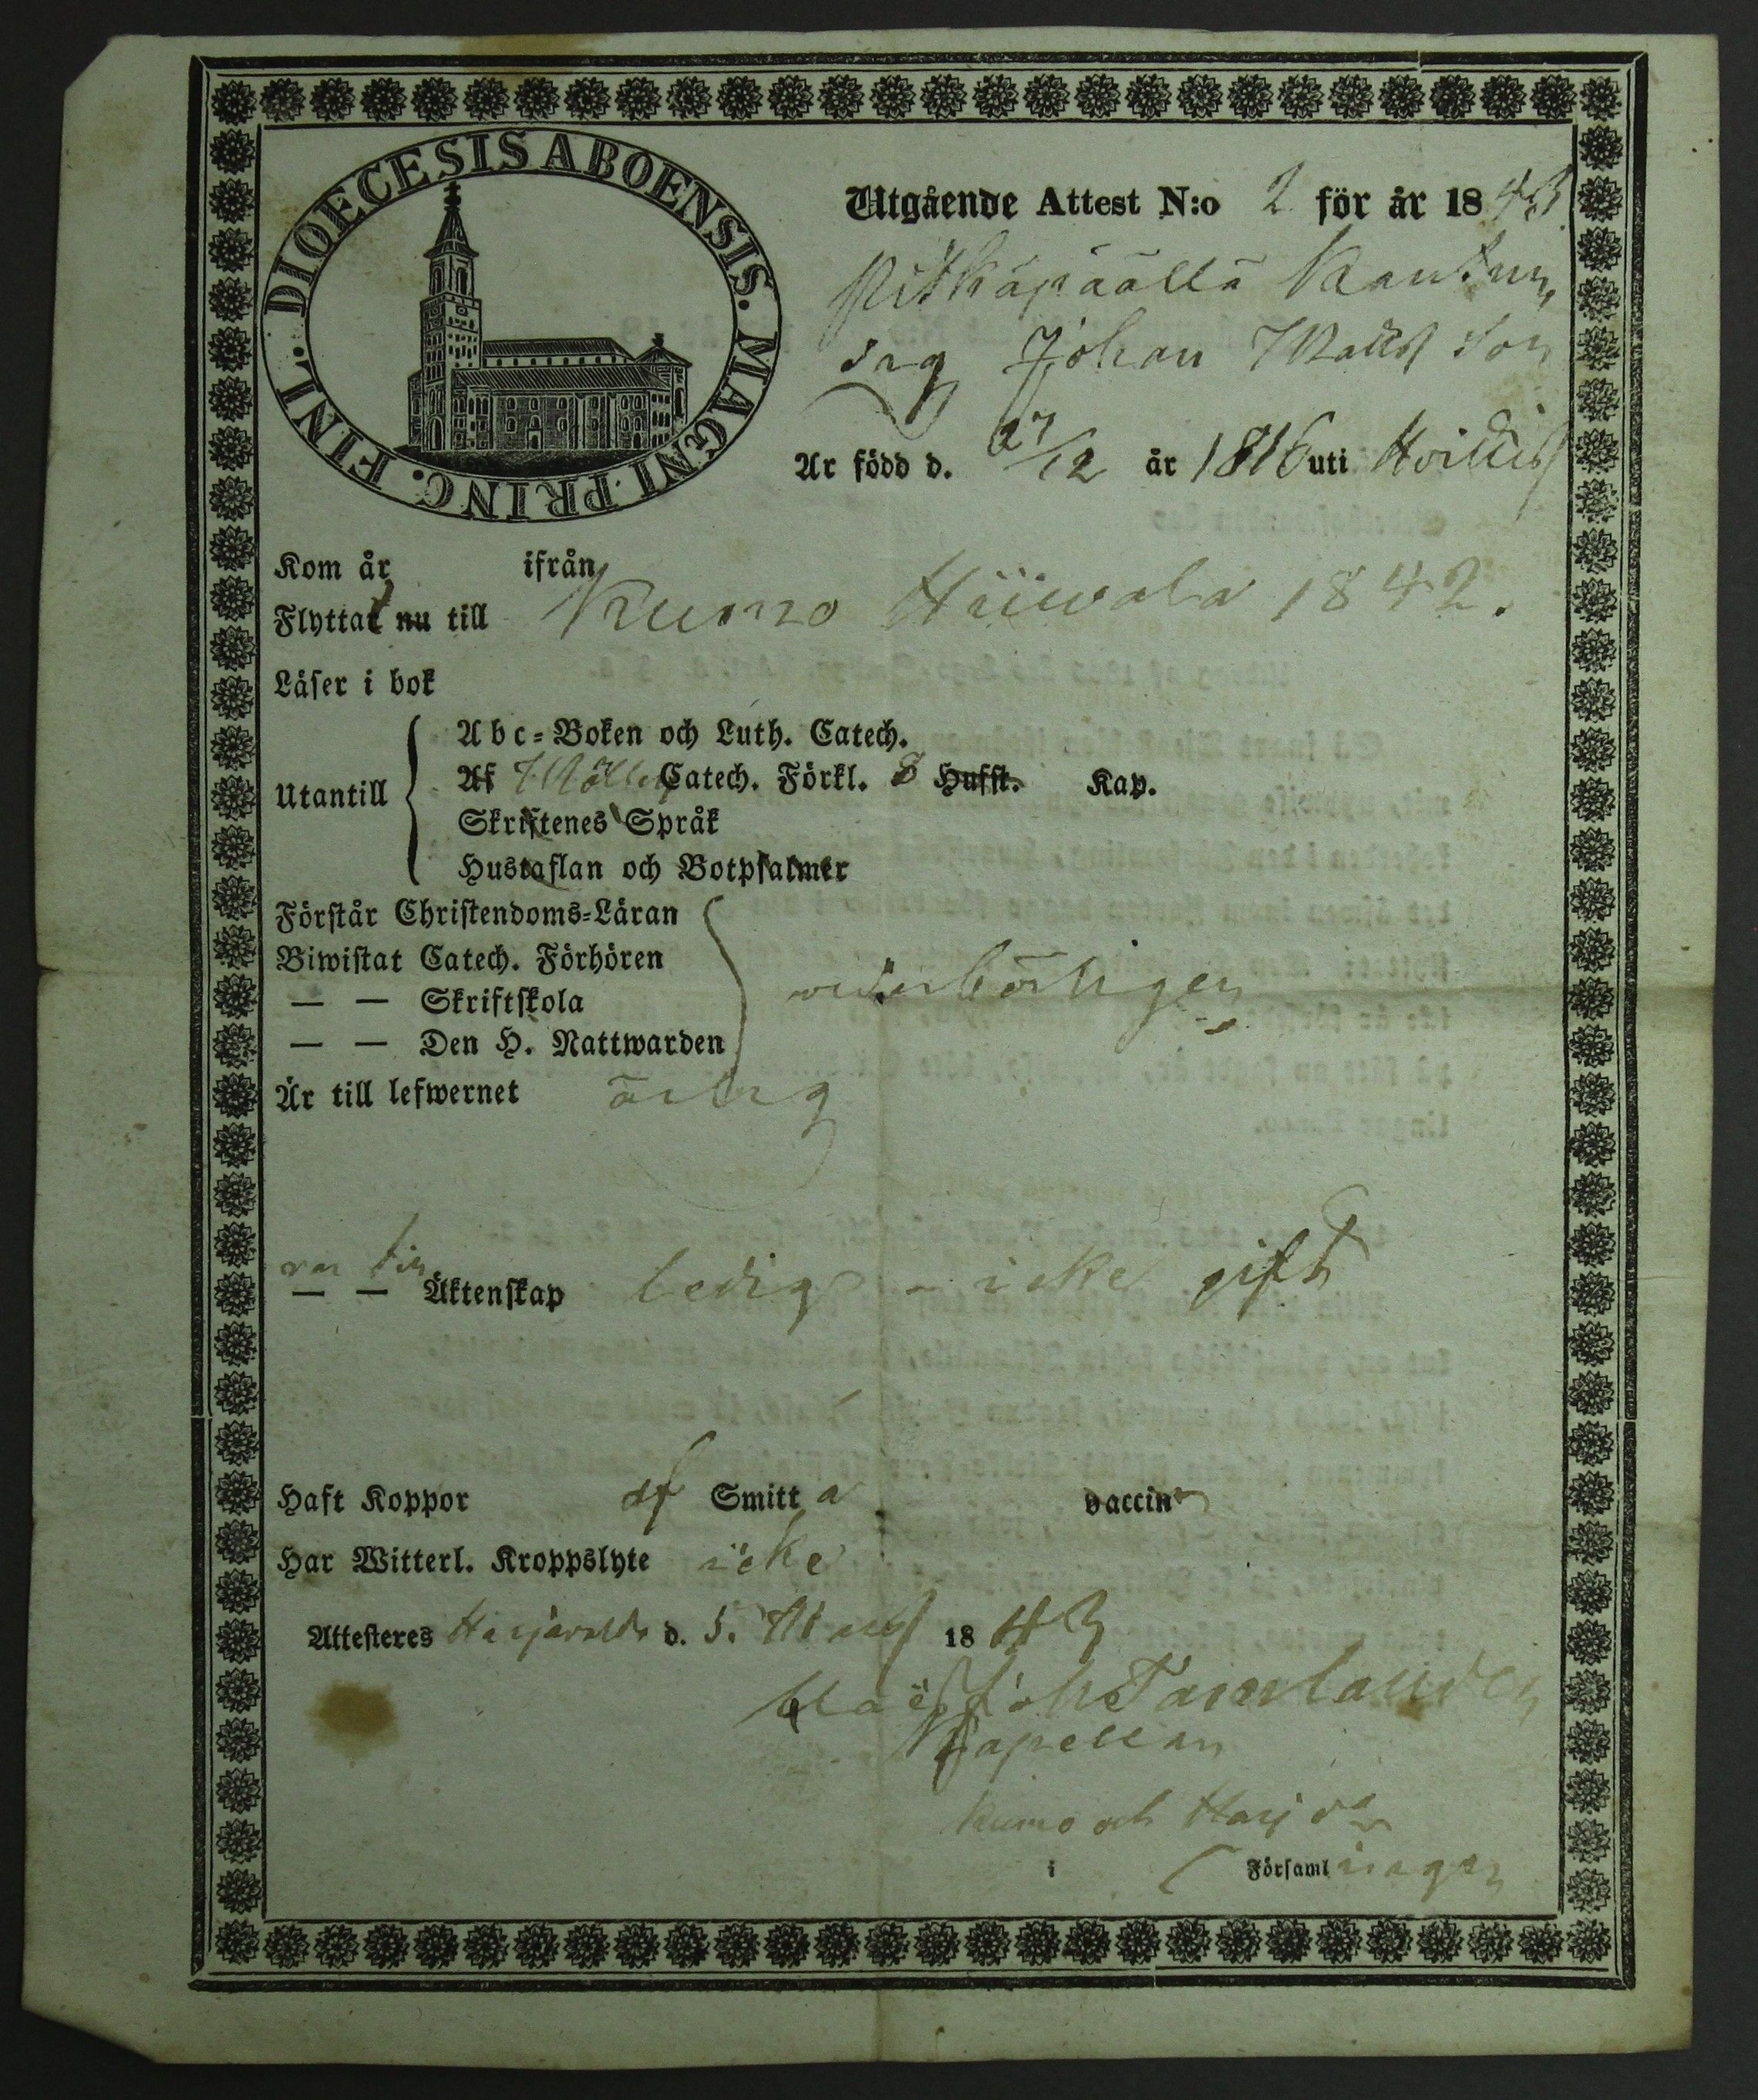 DIOECESIS ABOENSIS. MAGNI PRINC. FINL.
Utgående Attest N:o 2 för år 1843
Pitkäpäällä
Johan son
Är född d. 27/12 år 1816 uti Hvittis
Kom år ifrån
Flyttat nu till Kumo Hiiwola 1842.
Läser i bok
Utantill
Abc-Boken och Luth. Catech.
Af Catech. Förkl. 8 Hufst. Kap.
Skriftenes Språk
Hustaflan och Botpsalmer
Förstår Christendoms-Läran
Biwistat Catech. Förhören
— — Skriftskola
— — Den H. Nattwarden
vederbörligen
Är till lefwernet ärlig
— — Äktenskap ledig - icke gift
Haft Koppor af Smitta vaccin
Har Witterl. Kroppslyte icke
Attesteres Harjavalda d. 5. Mars 1843
Kapellan
Kumo och Harj
i Församlingen